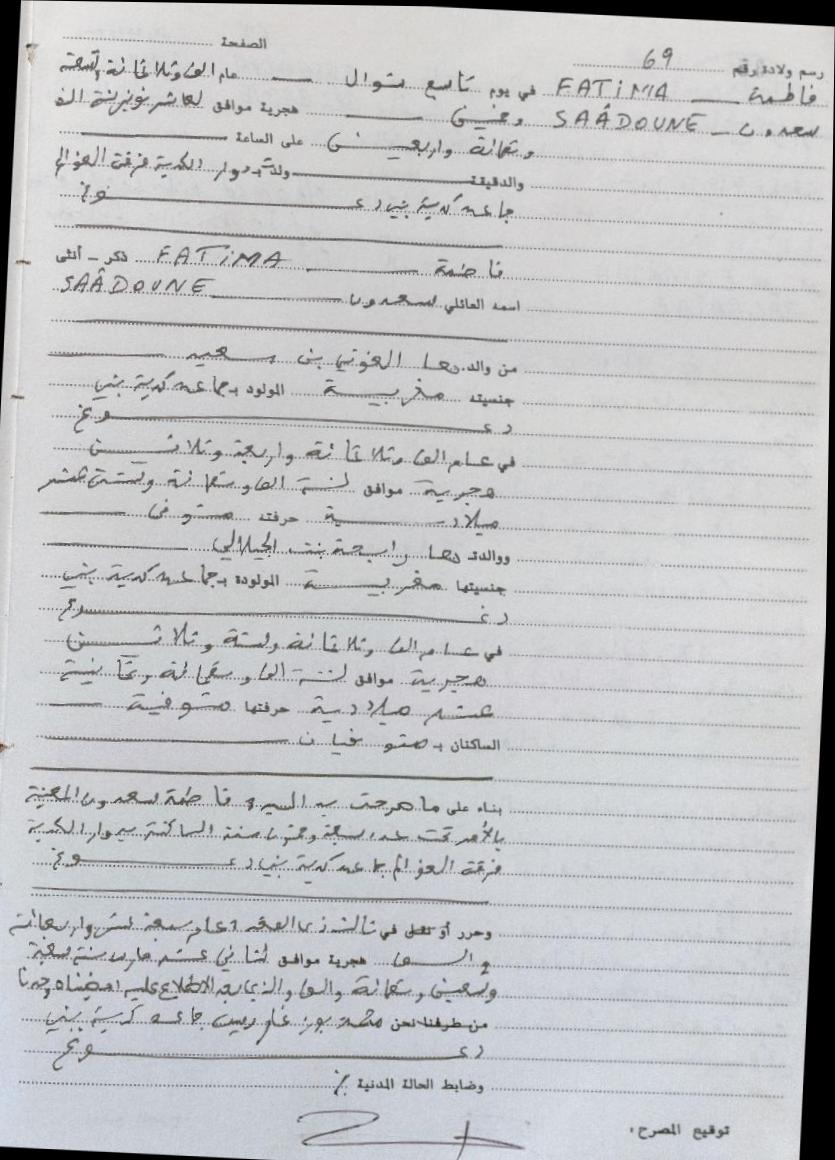 الصفحة
رسم ولادة رقم 69
فاطمة FATIMA في يوم تاسع شوال عام الف وثلاثمائة وتسعة
سعدون SAÂDOUNE وخمسين هجرية موافق لعاشر نونبر سنة الف
وتسعمائة واربعين على الساعة
والدقيقة ولدت بدوار الكدية فرقة العوالم
جماعة كدية بني دغوغ
فاطمة FATIMA ذكر - أنثى
اسمه العائلي سعدون SAÂDOUNE
من والدها الغوتي بن سعيد
جنسيته مغربية المولود بجماعة كدية بني
دغوغ
في عام الف وثلاثمائة واربعة وثلاثين
هجرية موافق لسنة الف وتسعمائة وستة عشر
ميلادية حرفته متوفى
ووالدتها رابحة بنت الجيلالي
جنسيتها مغربية المولودة بجماعة كدية بني
دغوغ
في عام الف وثلاثمائة وستة وثلاثين
هجرية موافق لسنة الف وتسعمائة وثمانية
عشر ميلادية حرفتها متوفية
الساكنان بـ متوفيان
بناء على ما صرحت به السيدة فاطمة سعدون المعنية
بالأمر تحت عدد سبعة وخمسون سنة الساكنة بدوار الكدية
فرقة العوالم جماعة كدية بني دغوغ
وحرر أو نقل في ثالث ذي القعدة عام سبعة عشر واربعمائة
والف هجرية موافق لثاني عشر مارس سنة سبعة
وتسعين وتسعمائة والف والذي بعد الاطلاع عليه امضيناه
من طرفنا نحن محمد رئيس جماعة كدية بني
دغوغ
وضابط الحالة المدنية ./.
توقيع المصرح،